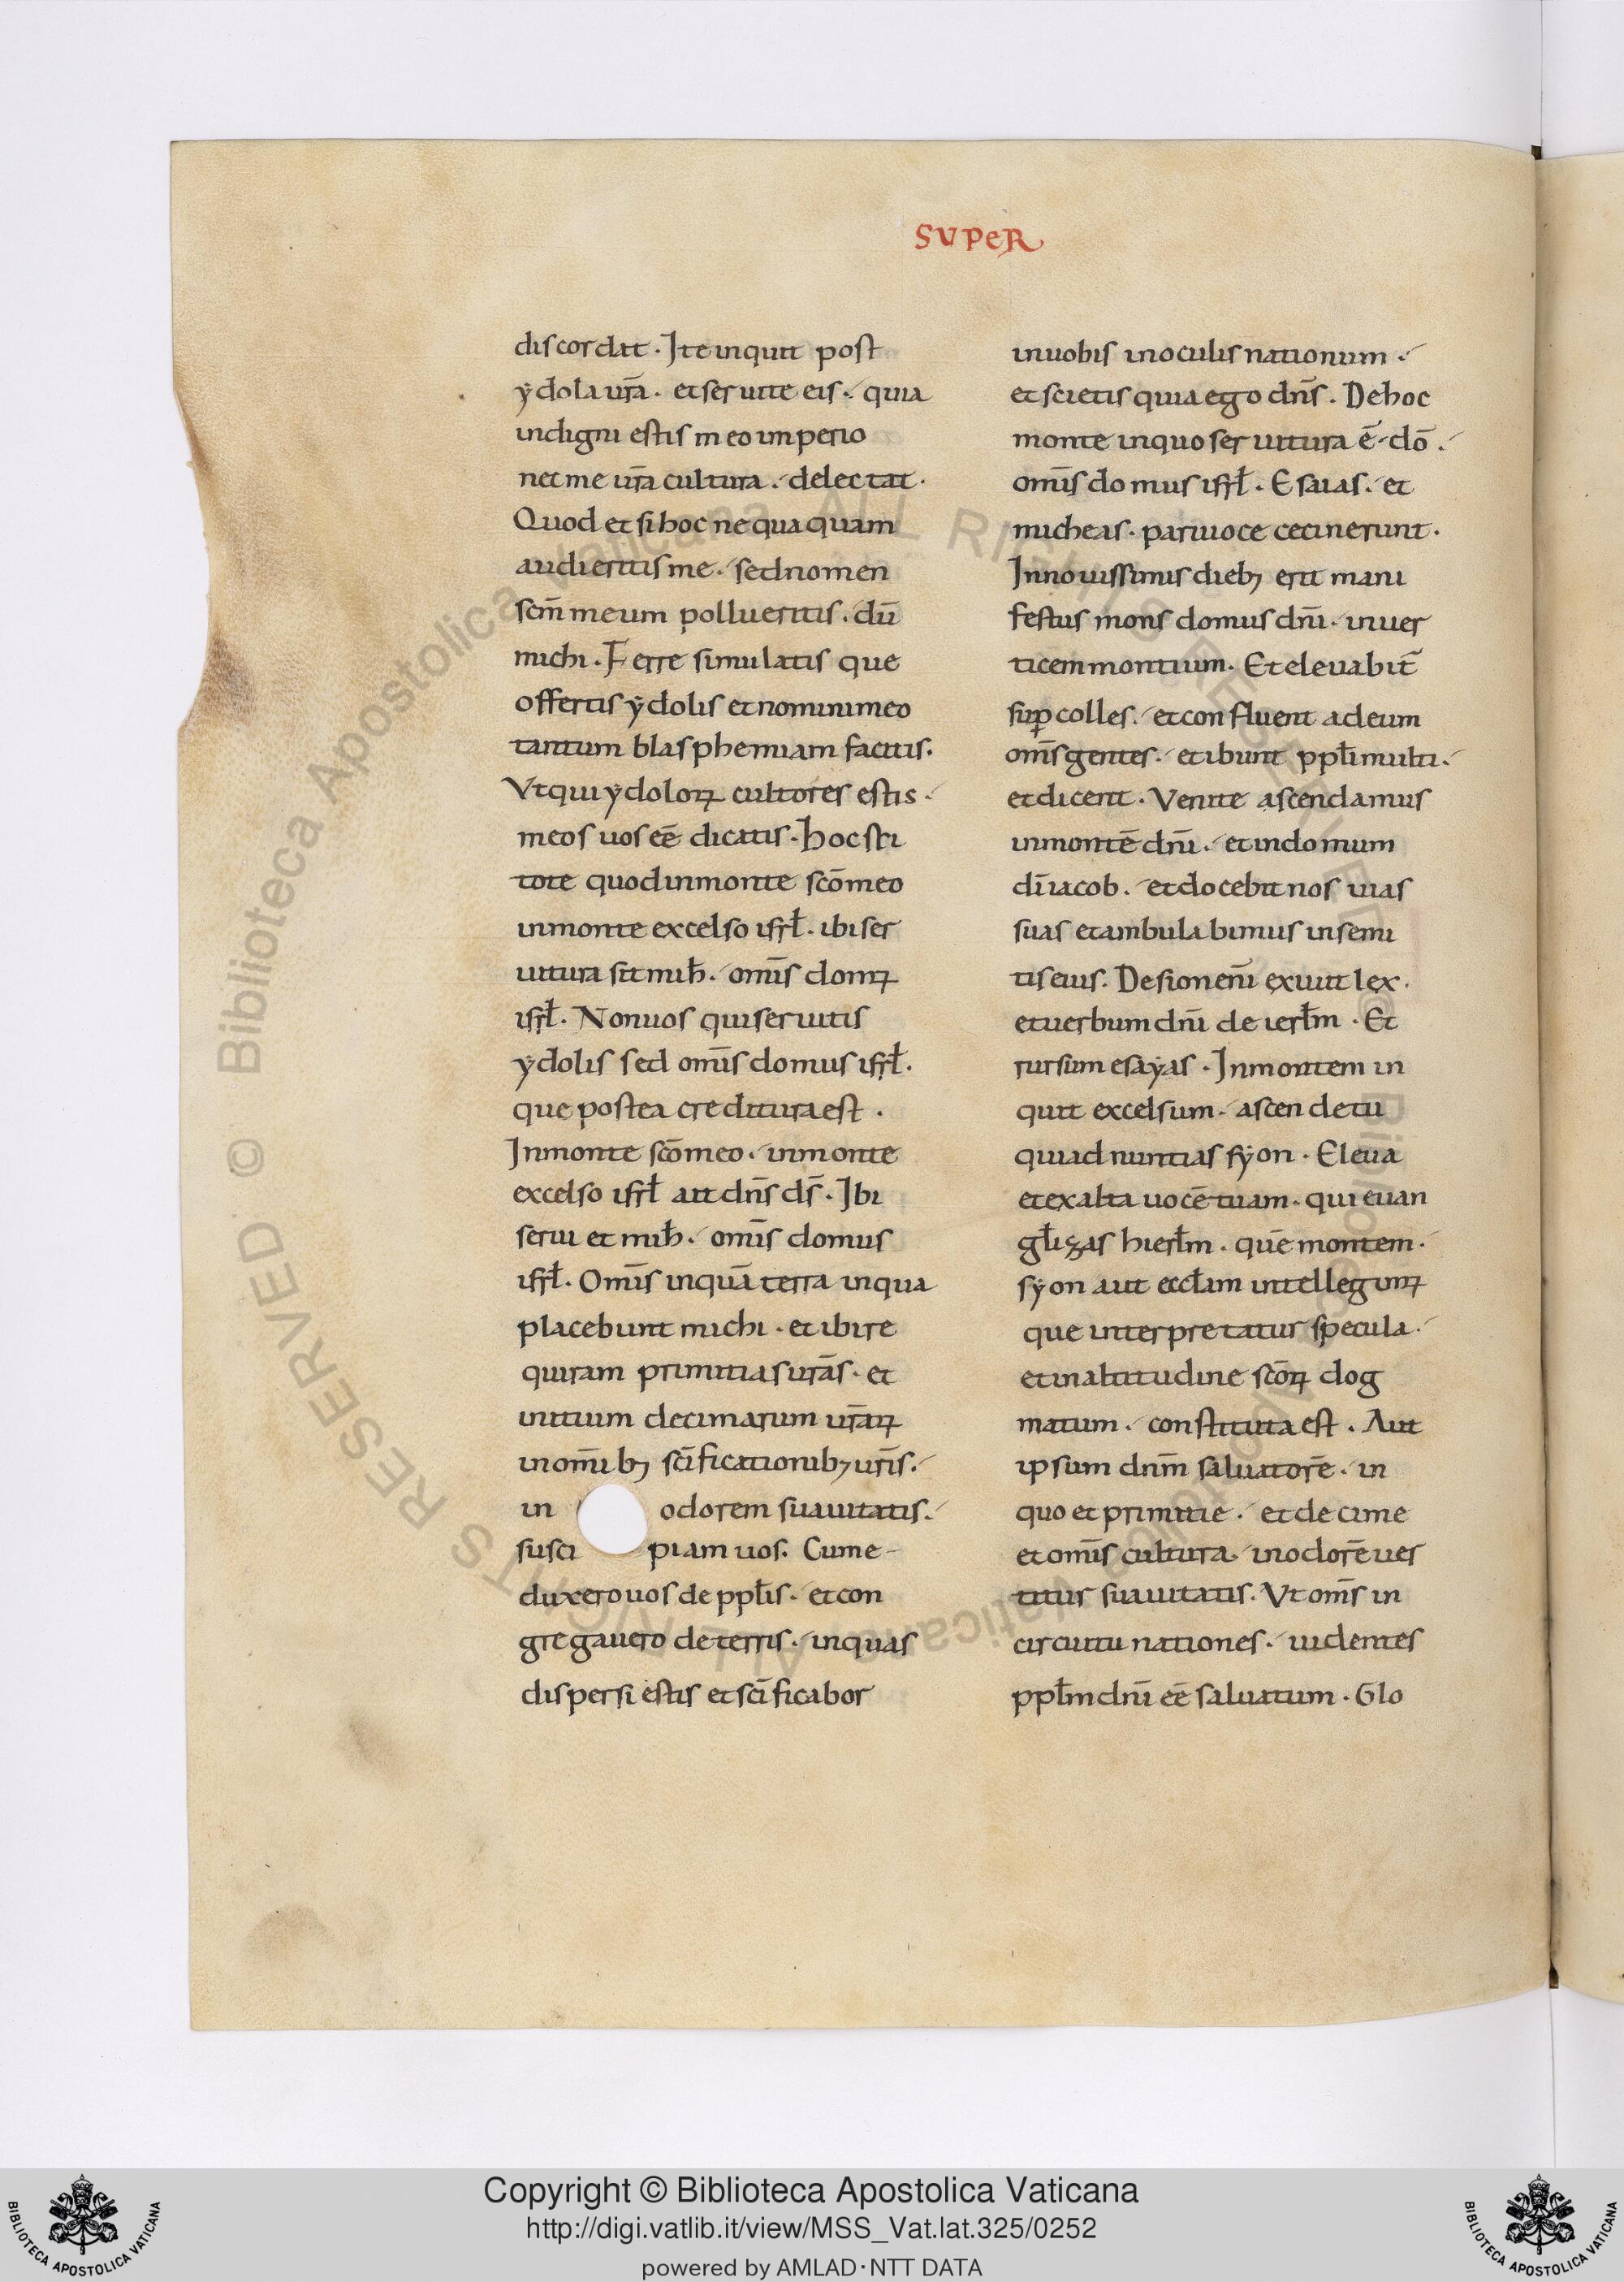 SVPER
discordat. Ite inquit post
ydola ur̄a. et seruite eis. quia
indigni estis meo imperio
nec me ur̄a cultura. delectat.
Quod et si hoc nequaquam
audieritis me. sed nomen
scm̄ meum pollueritis. dū
michi. Ferre simulatis que
offertis ydolis et nomini meo
tantum blasphemiam facitis.
Vt qui ydoloꝝ cultores estis.
meos uos eē dicatis. Hoc sci
tote quod in monte scō meo
in monte excelso isrł. ibi ser
uitura sit mih̄. omīs domꝝ
isrł. Non uos qui seruitis
ydolis sed omīs domus isrł.
que postea creditura est.
In monte scō meo. in monte
excelso isrł ait dn̄s ds̄. Ibi
serui et mih̄. omīs domus
isrł. Omīs inquā terra in qua
placebunt michi. et ibi re
quiram primitias ur̄as. et
initium decimarum ur̄aꝝ
in omībꝫ scīficationibꝫ ur̄is.
in odorem suauitatis.
susci piam uos. Cum e-
duxero uos de ppłis. et con
gregauero de terris. in quas
dispersi estis et scīficabor
in uobis in oculis nationum.
et scietis quia ego dn̄s. De hoc
monte in quo seruitura ē dō.
omīs domus isrł. Esaias. et
micheas. pari uoce cecinerunt.
In nouissimis diebꝫ erit mani
festus mons domus dn̄i. in uer
ticem montium. Et eleuabit̄
suꝑ colles. et confluent ad eum
om̄s gentes. et ibunt ppłi multi.
et dicent. Venite ascendamus
in montē dn̄i. et in domum
dī iacob. et docebit nos uias
suas et ambulabimus in semi
tis eius. De sion enī exiuit lex.
et uerbum dn̄i de ierłm. Et
rursum esayas. In montem in
quit excelsum. ascende tu
qui adnuntias syon. Eleua
et exalta uocē tuam. qui euan
głizas hierłm. quē montem.
syon aut eccłam intellegimꝝ
que interpretatur specula.
et in altitudine scōꝝ dog
matum. constituta est. Aut
ipsum dn̄m saluatorē. in
quo et primitie. et decime
et omīs cultura. in odorē uer
titur suauitatis. Vt om̄s in
circuitu nationes. uidentes
ppłm dn̄i eē saluatum. Glo
© Biblioteca Apostolica Vaticana ALL RIGHTS RESERVED
© Biblioteca Apostolica Vaticana ALL RIGHTS RESERVED
BIBLIOTECA APOSTOLICA VATICANA
Copyright © Biblioteca Apostolica Vaticana
http://digi.vatlib.it/view/MSS_Vat.lat.325/0252
powered by AMLAD·NTT DATA
BIBLIOTECA APOSTOLICA VATICANA